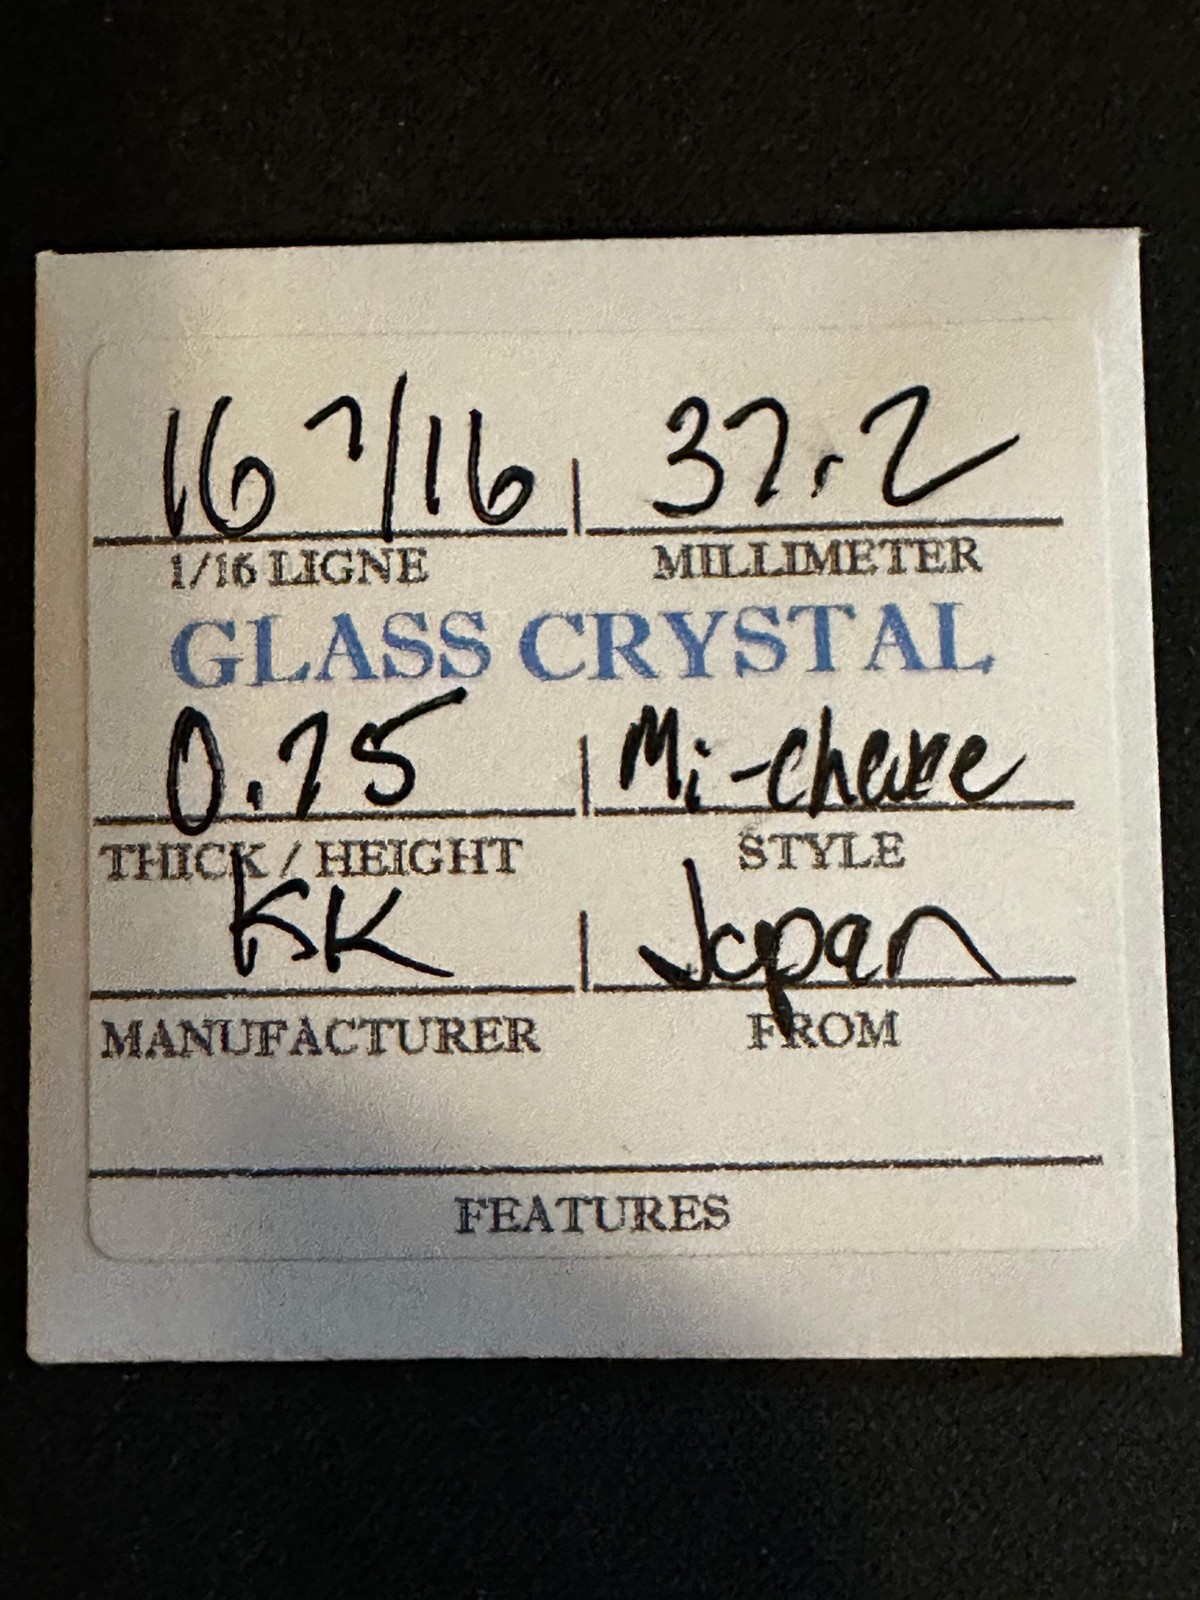 16 7/16 37.2
1/16 LIGNE MILLIMETER
GLASS CRYSTAL
0.75 Mi-cheve
THICK / HEIGHT STYLE
KK Japan
MANUFACTURER FROM
FEATURES